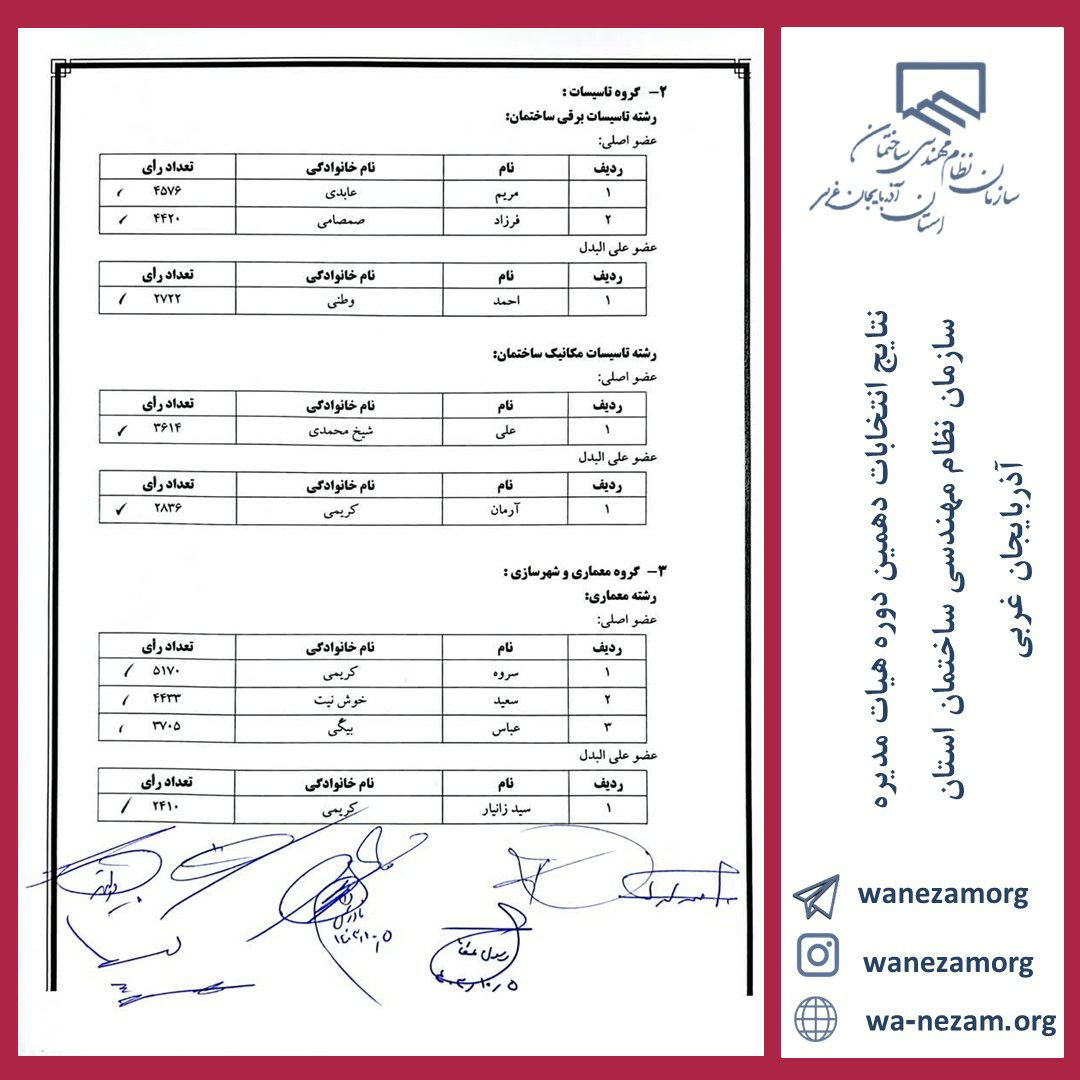 ۲- گروه تاسیسات :
رشته تاسیسات برقی ساختمان:
عضو اصلی:
ردیف نام نام خانوادگی تعداد رأی
۱ مریم عابدی ۴۵۷۶
۲ فرزاد صمصامی ۴۴۲۰
عضو علی البدل
ردیف نام نام خانوادگی تعداد رأی
۱ احمد وطنی ۲۷۲۲
رشته تاسیسات مکانیک ساختمان:
عضو اصلی:
ردیف نام نام خانوادگی تعداد رأی
۱ علی شیخ محمدی ۳۶۱۴
عضو علی البدل
ردیف نام نام خانوادگی تعداد رأی
۱ آرمان کریمی ۲۸۳۶
۳- گروه معماری و شهرسازی :
رشته معماری:
عضو اصلی:
ردیف نام نام خانوادگی تعداد رأی
۱ سروه کریمی ۵۱۷۰
۲ سعید خوش نیت ۴۴۳۳
۳ عباس بیگی ۳۷۰۵
عضو علی البدل
ردیف نام نام خانوادگی تعداد رأی
۱ سید زانیار کریمی ۲۴۱۰
سازمان نظام مهندسی ساختمان
استان آذربایجان غربی
نتایج انتخابات دهمین دوره هیات مدیره
سازمان نظام مهندسی ساختمان استان
آذربایجان غربی
wanezamorg
wanezamorg
wa-nezam.org